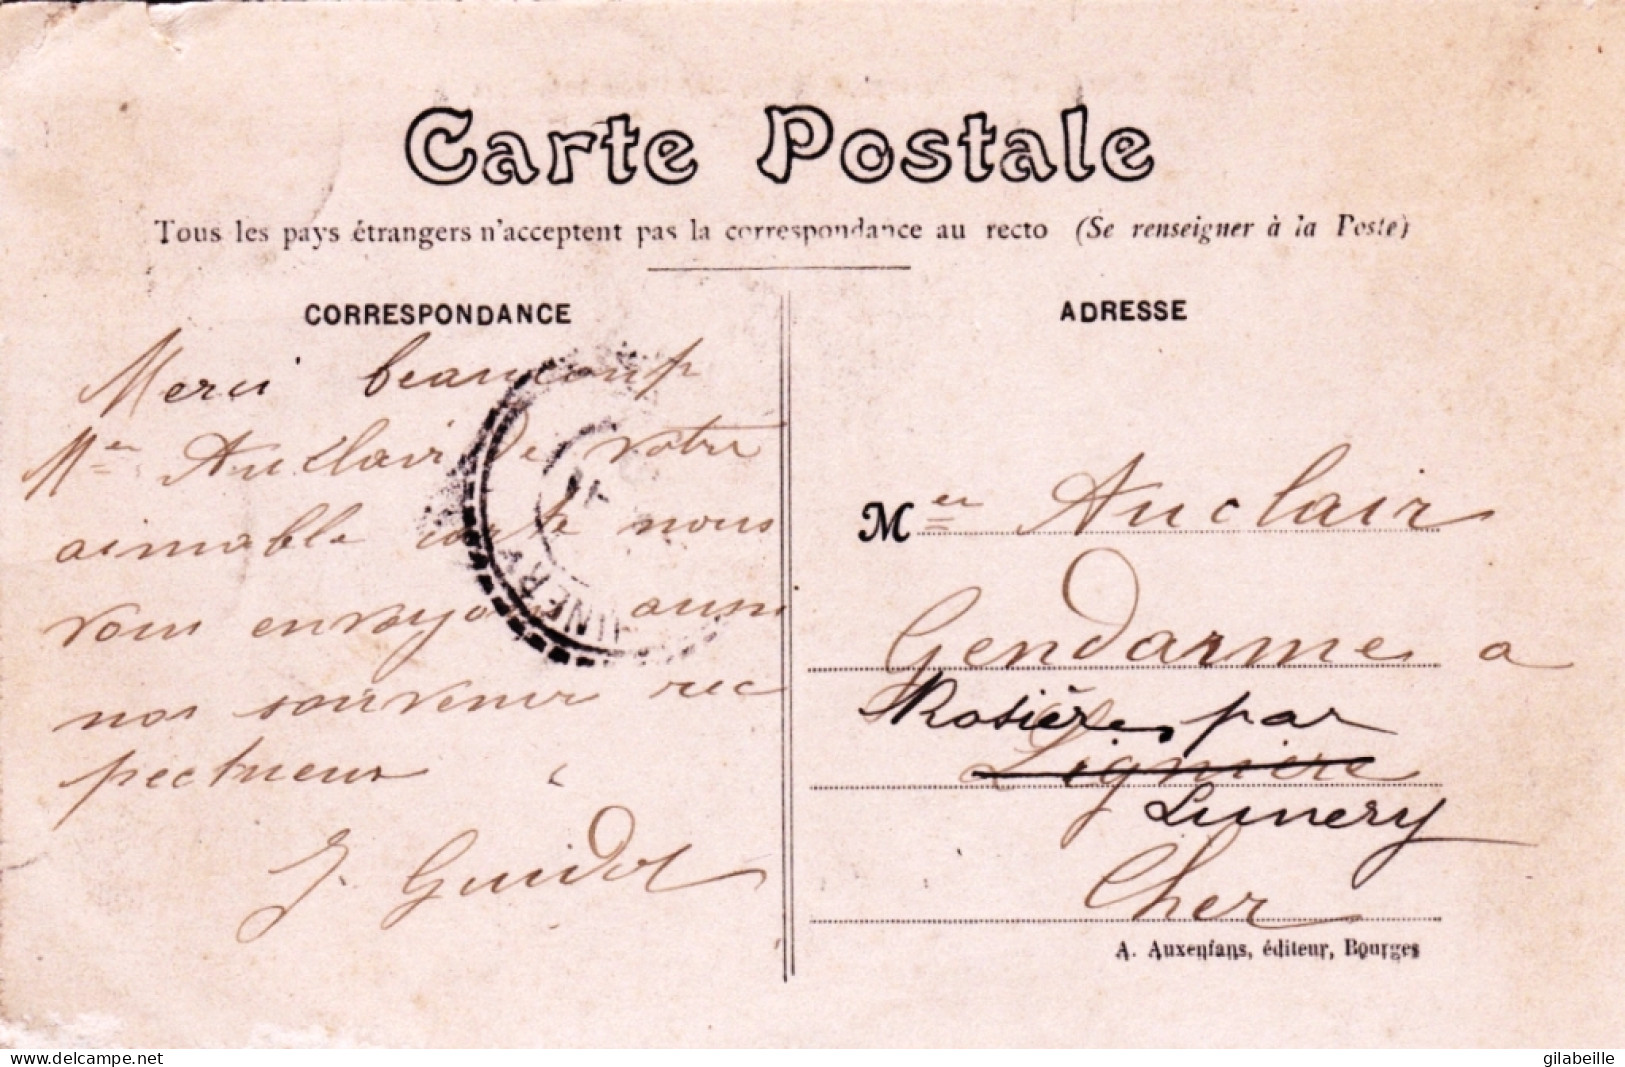 Carte Postale
Tous les pays étrangers n'acceptent pas la correspondance au recto (Se renseigner à la Poste)
CORRESPONDANCE
Merci beaucoup
Mer Auclair de votre
aimable carte nous
vous envoyons aussi
nos souvenir rec
pectueux
J. Guidot
LUNERY
ADRESSE
Mer Auclair
Gendarme a
Rosières par
Lignière
Lunery
Cher
A. Auxenfans, éditeur, Bourges
www.delcampe.net
gilabeille